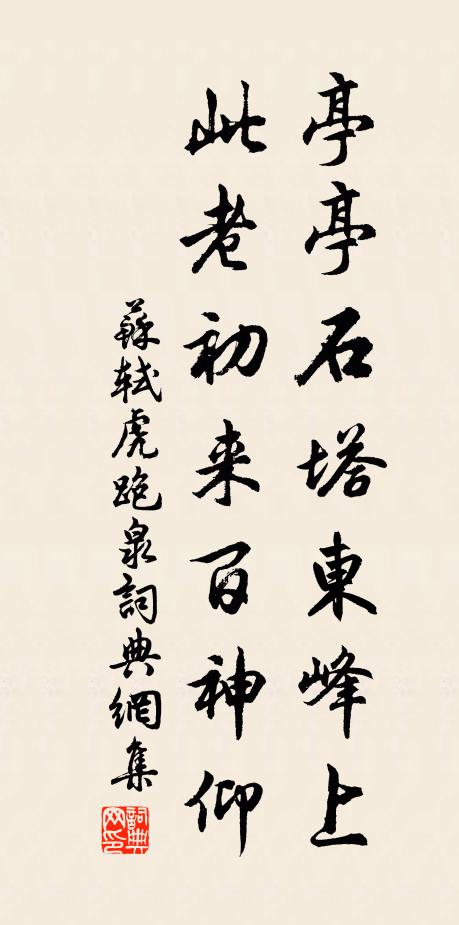 亭亭石塔東峰上
此老初来百神仰
蘇軾虎跑泉詞典網集
詞典網印